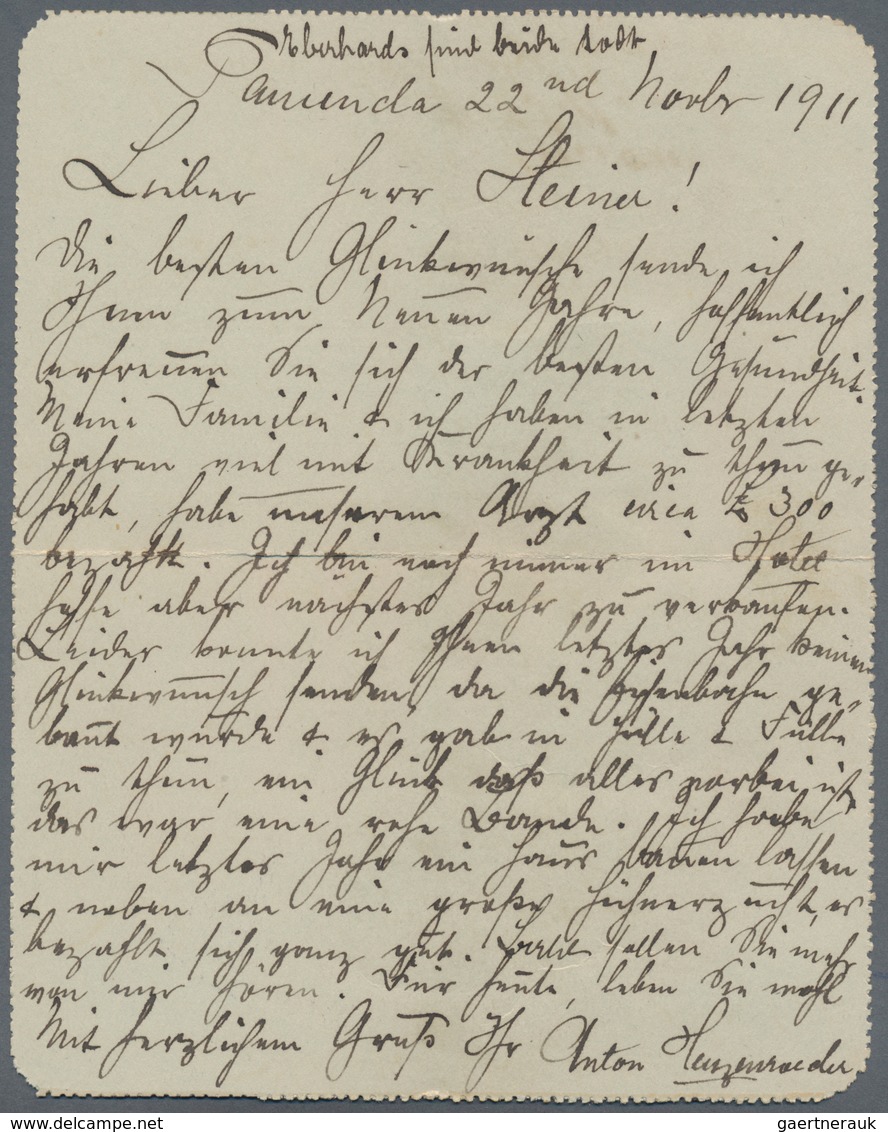 Eberhards sind beide todt
Tanunda 22nd Novbr 1911
Lieber Herr Steiner!
Die besten Glückwünsche sende ich
Ihnen zum Neuen Jahre, hoffentlich
erfreuen Sie sich der besten Gesundheit.
Meine Familie & ich haben in letzten
Jahren viel mit Krankheit zu thun ge-
habt, habe unserem Arzt circa £ 300
bezahlt. Ich bin noch immer im Hotel
hoffe aber nächstes Jahr zu verkaufen.
Leider konnte ich Ihnen letztes Jahr keinen
Glückwunsch senden, da die Eisenbahn ge-
baut wurde & es gab in Hülle & Fülle
zu thun, ein Glück daß alles vorbei ist
das war eine rohe Bande. Ich habe
mir letztes Jahr ein Haus bauen lassen
& neben an eine große Hühnerzucht, es
bezahlt sich ganz gut. Bald sollen Sie mehr
von mir hören. Für heute, leben Sie wohl
Mit herzlichem Gruß Ihr Anton Heuzenroeder
delcampe.net
gaertnerauk